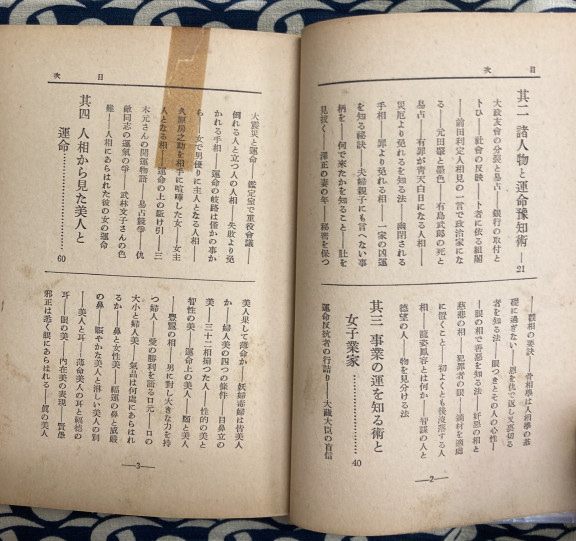 目次
其二 諸人物と運命豫知術 ―21
大政友會の分裂と易占――銀行の取付と
トひ――社會の反映――ト者に依る組閣
――前田利定人相見の一言で政治家にな
る――元田肇と墨色――有島武郎の死と
易占――有罪が青天白日になる人相――
災厄より免れるを知る法――幽閉される
手相――罪より免れる相――一家の凶運
を知る祕訣――夫婦親子にも言へない事
柄を――何で來たかを知ること――肚を
見拔く――澤正の妻の年――秘密を保つ
――觀相の要訣――骨相學は人相學の基
礎に過ぎない――恩を仇で返し又裏切る
者を知る法――眼つきとその人の心性―
―眼の相で善惡を知る法――奸惡の相と
慈悲の相――犯罪者の眼――適材を適處
に置くこと――初よくとも後沒落する人
相――龍姿鳳容とは何か――智謀の人と
德望の人――物を見分ける法
其三 事業の運を知る術と
女子業家…………40
運命反抗者の行詰り――大藏大臣の盲信
―2―
目次
大震災と運命――鑑定室で重役會議――
倒れる人と立つ人の人相――失敗より免
かれる手相――運命の岐路は僅かの事か
ら――女で男優りに主人となる人相――
久原房之助を相手に喧嘩した女――女主
人となる相――運命の上の駈け引――三
木元さんの開運物語――易占競爭――仇
敵同志の運氣の爭――武林文子さんの色
難――人相にあらはれた彼の女の運命
其四 人相から見た美人と
運命…………60
美人果して薄命か――妖婦毒婦は皆美人
か――婦人美の四つの條件――目鼻立の
美――三十二相揃つた人――性的の美と
智性の美――運命上の美人――顏と美人
――豐艷の相――男に對し大きな力を持
つ婦人――愛の勝利を語る口元――口の
大小と婦人美――氣品は何處にあらはれ
るか――鼻と女性美――福運の鼻と威嚴
の鼻――賑やかな美人と淋しい美人の別
――美人と耳――薄命美人の耳と福德の
耳――眼の美――内在美の表現――賢愚
邪正は悉く眼にあらはれる――眞の美人
―3―